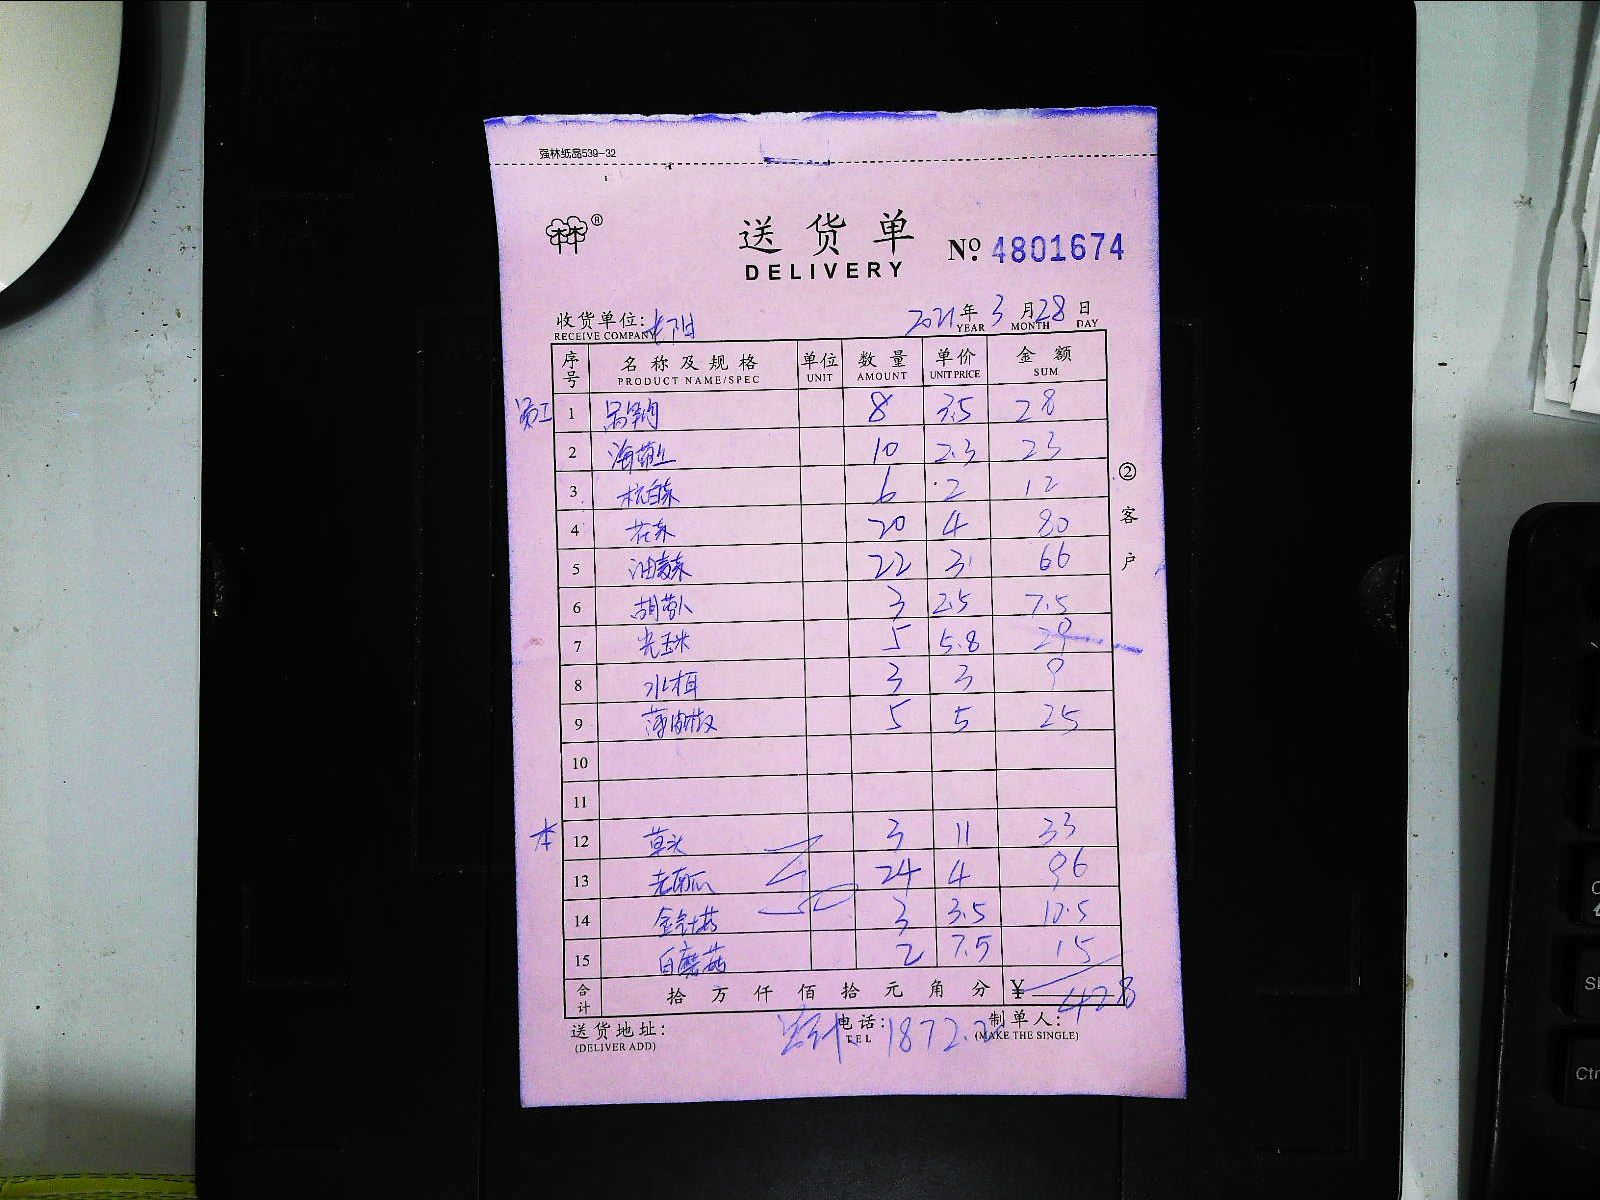 强林纸品539-32
林®
送货单
DELIVERY
No. 4801674
收货单位:
RECEIVE COMPANY
2021年3月28日
YEAR MONTH DAY
序号 名称及规格 单位 数量 单价 金额
PRODUCT NAME/SPEC UNIT AMOUNT UNIT PRICE SUM
员工 1 8 3.5 28
2 海 10 2.3 23
3 杭白菜 6 2 12
4 花菜 20 4 80
5 油麦菜 22 3 66
6 胡萝卜 3 2.5 7.5
7 光玉米 5 5.8 29
8 水木耳 3 3 9
9 薄肉椒 5 5 25
10
11
本 12 草头 3 11 33
13 老南瓜 24 4 96
14 金针菇 3 3.5 10.5
15 白蘑菇 2 7.5 15
合计 拾万仟佰拾元角分 ¥ 428
②客户
送货地址: 电话: 1872. 制单人:
(DELIVER ADD) TEL (MAKE THE SINGLE)